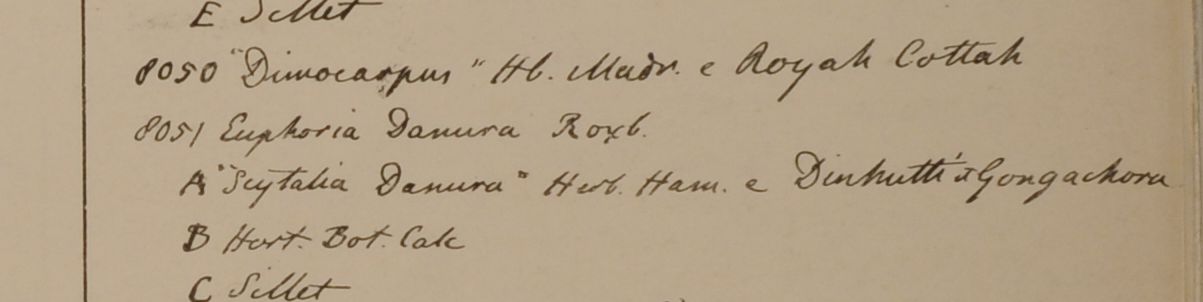 E Sillet
8050 "Dimocarpus" Hb. Madr. e Royah Cottah
8051 Euphoria Danura Roxb.
A "Scytalia Danura" Herb. Ham. e Dinhutti & Gongachora
B Hort. Bot. Calc
C Sillet